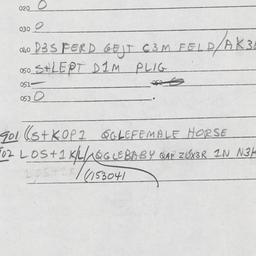 020 O
030 O
040 D3S FERD GEJT C3M FELD/AK3
050 S+LEPT D1M PLIG
051 —
053 O .
901 (S+KOP1 QGLEFEMALE HORSE
T02 LOS+1K/L/QGLEBABY QAF ZUX3R IN N3H
(153041